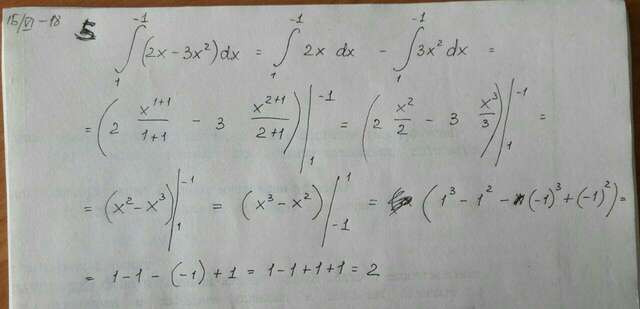 15/VI-18
5 ∫₁⁻¹ (2x - 3x²)dx = ∫₁⁻¹ 2x dx - ∫₁⁻¹ 3x² dx =
= (2 x¹⁺¹/1+1 - 3 x²⁺¹/2+1)|₁⁻¹ = (2 x²/2 - 3 x³/3)|₁⁻¹ =
= (x² - x³)|₁⁻¹ = (x³ - x²)|₋₁¹ = (1³ - 1² - (-1)³ + (-1)²) =
= 1 - 1 - (-1) + 1 = 1 - 1 + 1 + 1 = 2